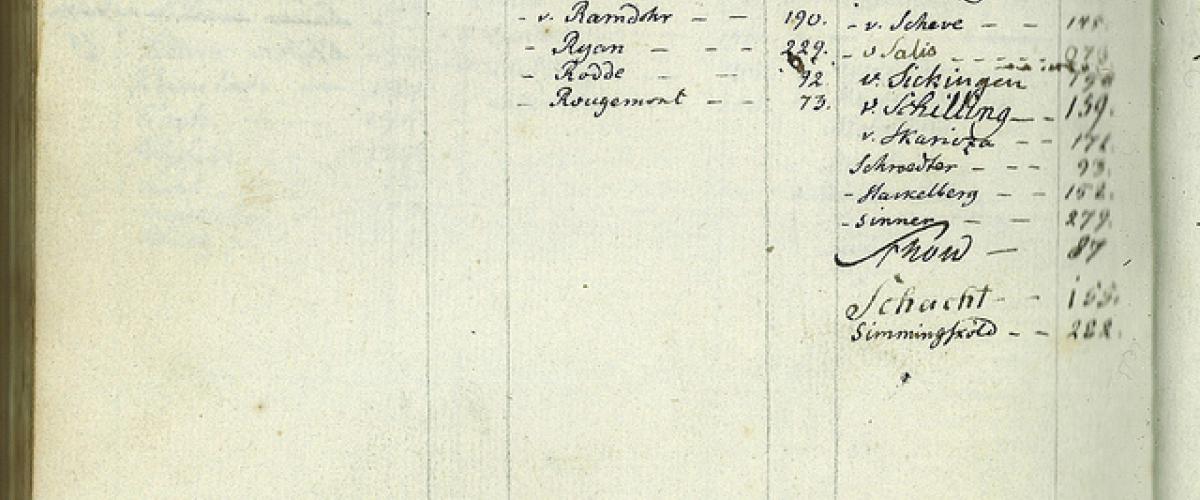 - v. Ramdohr - - 190.
- Ryan - - - 229.
- Rodde - - 92
- Rougemont - - 73.
- v. Scheve - - 148.
- v Salis - - - -
v. Sickingen
v. Schilling - - 159.
v. Skaricza - - 171.
Schroedter - - - 93.
- Hackelberg - - 152.
- Sinner - - 279.
Show - 87
Schacht - - 155.
Simmingsköld - - 282.